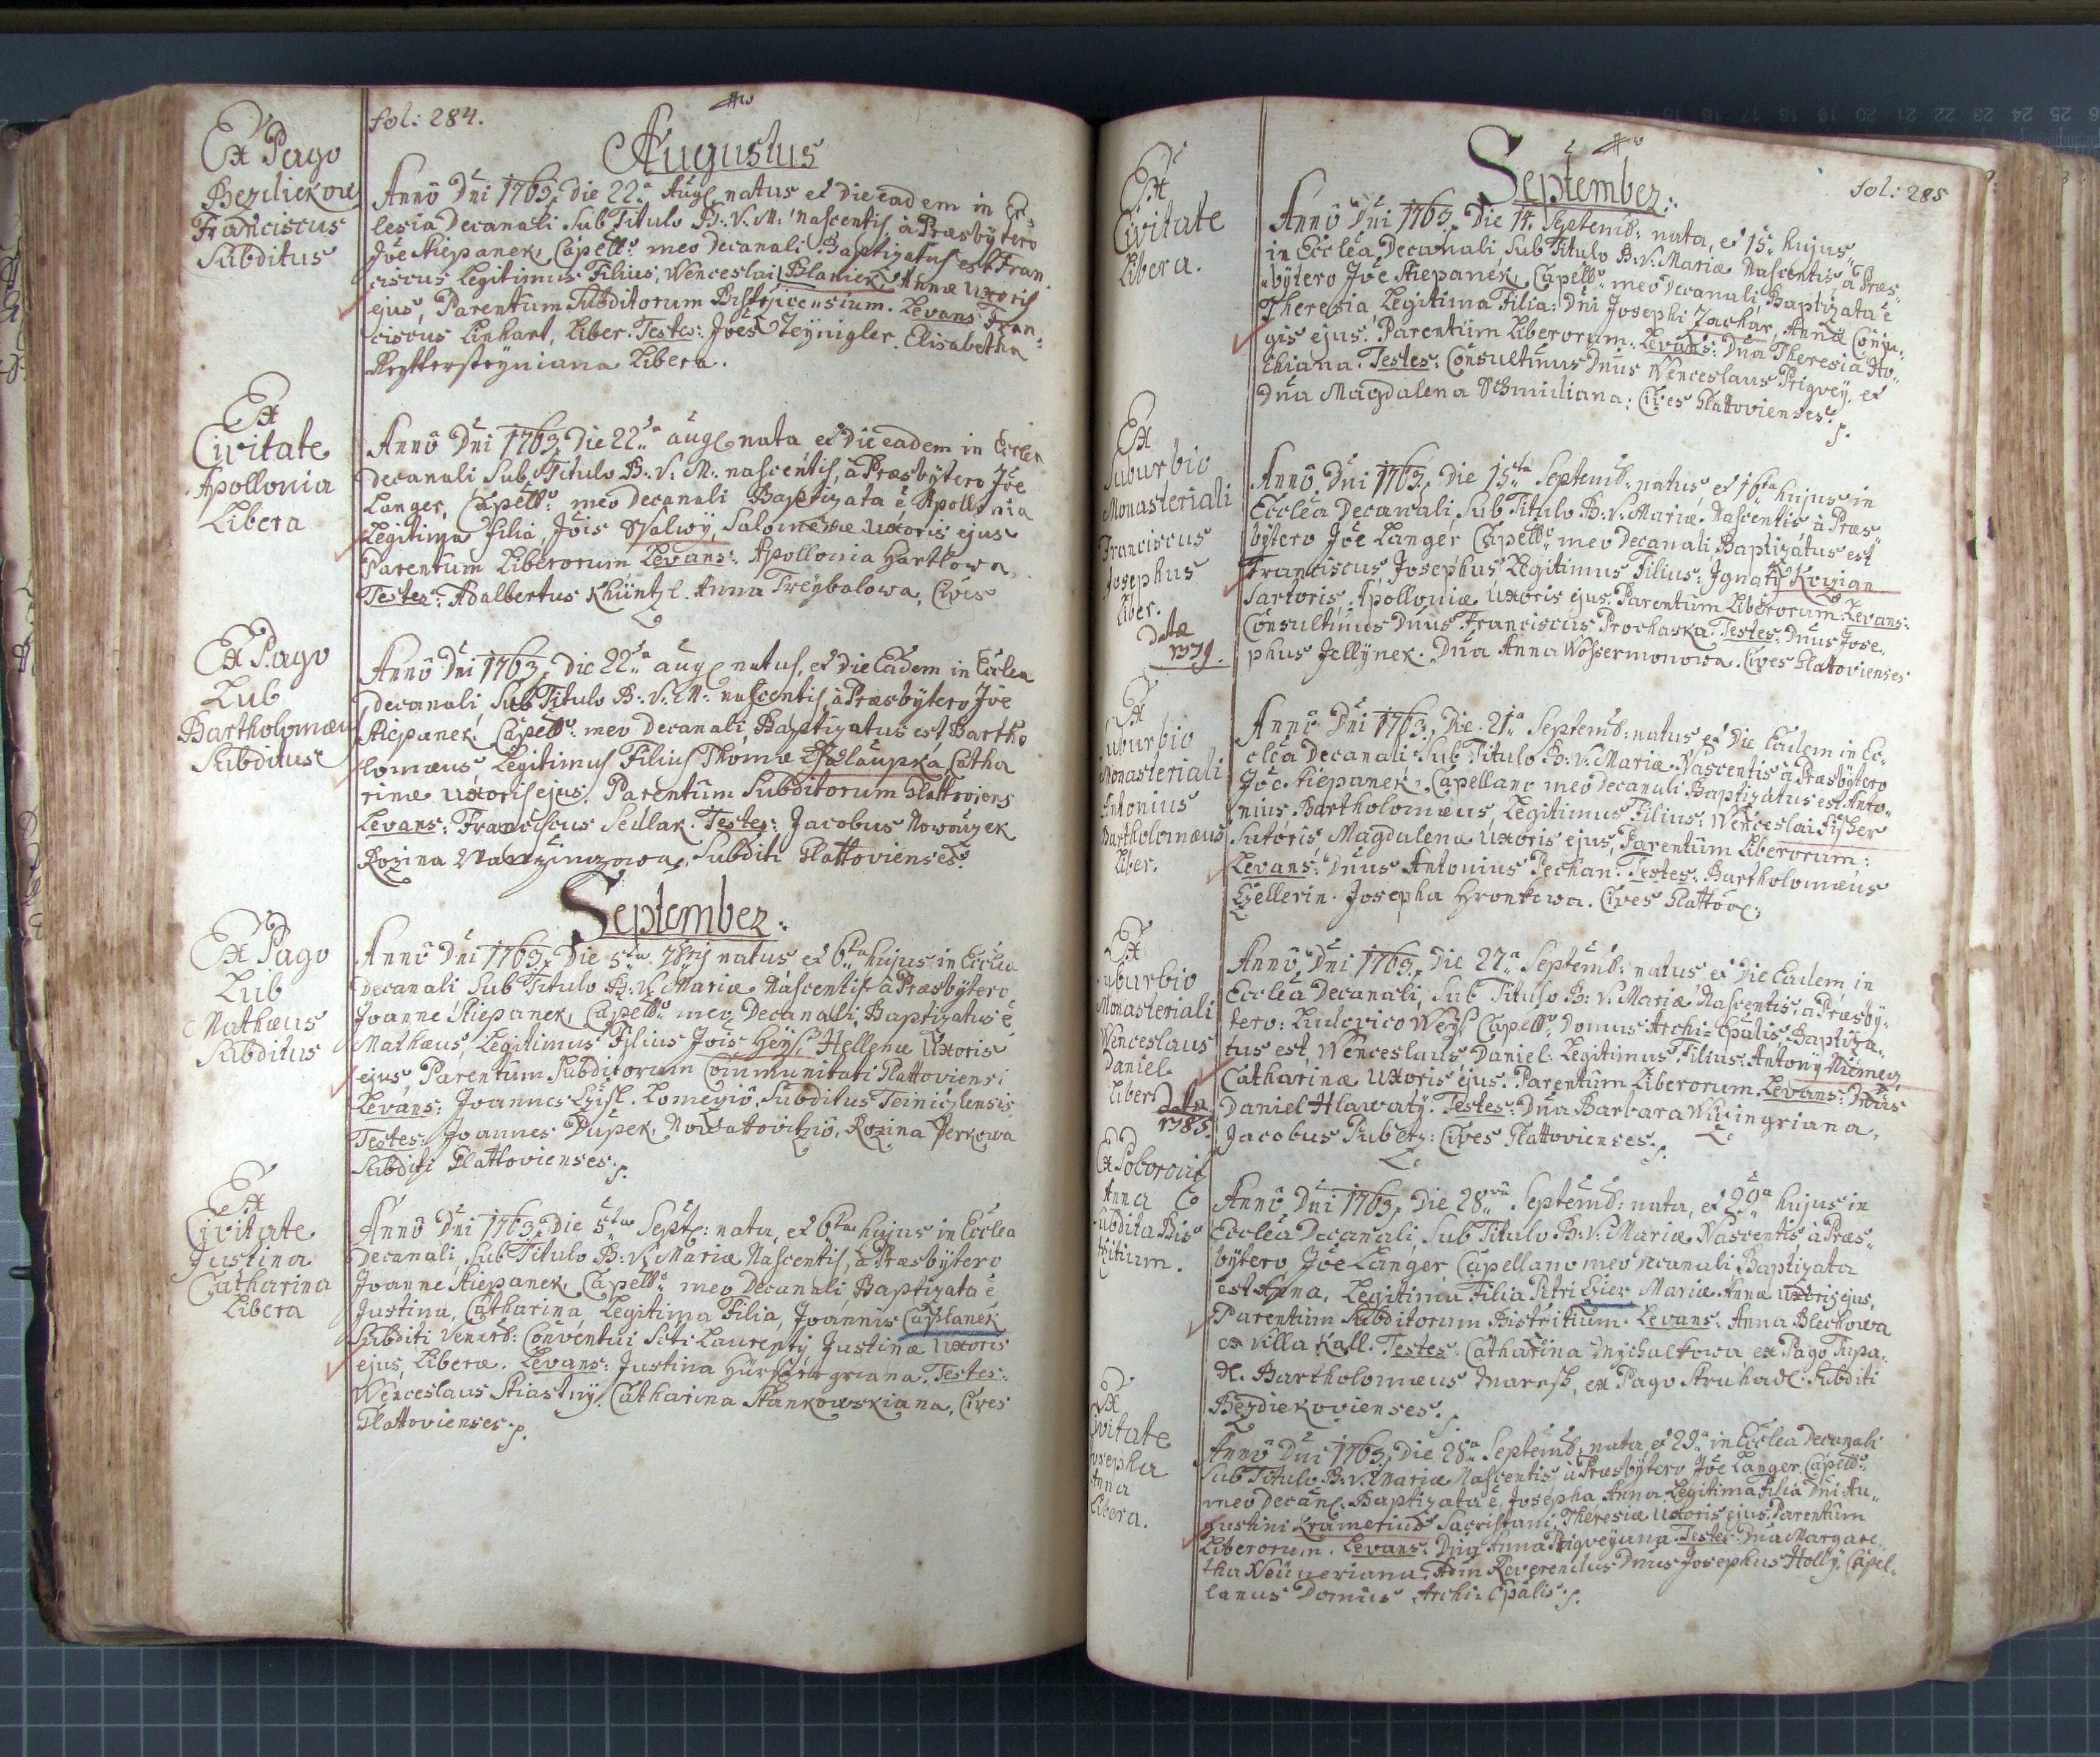 fol: 284.
Augustus
Ex Pago
Bezdiekow
Franciscus
Subditus
Anno Dni 1763, Die 22.a Aug. natus et Die eadem in Ec:
lesia Decanali Sub Titulo B. V. M. nascentis, à Præsbytero
Joe Stiepanek, Capello meo Decanali Baptizatus est Fran
ciscus Legitimus Filius, Wenceslai Blaniek, Annæ Uxoris
ejus, Parentum Subditorum Levans Fran:
ciscus Linhart, Liber. Testes: Joes Zeynigler. Elisabetha
Libera.
Ex
Civitate
Apollonia
Libera
Anno Dni 1763, Die 22da aug. nata et Die eadem in Eccle
Decanali Sub Titulo B. V. M. nascentis, à Præsbytero Joe
Langer, Capello meo Decanali Baptizata é Apollonia
Legitima Filia, Jois Salomenæ Uxoris ejus
Parentum Liberorum Levans: Apollonia Hartlowa,
Testes: Adalbertus Khüntzl. Anna Freybalowa, Cives
Ex Pago
Lub
Bartholomæus
Subditus
Anno Dni 1763, Die 22da aug. natus, et Die Eadem in Ecclea
Decanali, Sub Titulo B. V. M. nascentis, à Præsbytero Joe
Stiepanek, Capello meo Decanali, Baptizatus est, Bartho
lomæus, Legitimus Filius Thomæ Chalaupka Catha
rinæ Uxoris ejus, Parentum Subditorum Glattoviens
Levans: Franciscus Sedlak. Testes: Jacobus Nowotzek
Rozina Subditi Glattovienses.
September:
Ex Pago
Lub
Mathæus
Subditus
Anno Dni 1763, Die 5ta 7bris natus et 6ta hujus in Ecclea
Decanali Sub Titulo B. V. Mariæ Nascentis à Præsbytero
Joanne Stiepanek, Capello meo Decanali Baptizatus é
Mathæus, Legitimus Filius Jois Heysl Hellenæ Uxoris
ejus, Parentum Subditorum Communitati Glattoviensi
Levans: Joannes Subditus
Testes: Joannes Dupek, Rozina Perkowa
Subditi Glattovienses.
Ex
Civitate
Justina
Catharina
Libera
Anno Dni 1763, Die 5ta Septe: nata, et 6ta hujus in Ecclea
Decanali, Sub Titulo B. V. Mariæ Nascentis, à Præsbytero
Joanne Stiepanek Capello meo Decanali Baptizata é
Justina, Catharina, Legitima Filia, Joannis Caplanek
Subditi Venerb: Conventui Scti Laurentÿ Justinæ Uxoris
ejus, Liberæ. Levans: Justina Testes:
Wenceslaus Stiastnÿ, Catharina Stankowskiana, Cives
Glattovienses.
September:
fol: 285
Ex
Civitate
Libera.
Anno Dni 1763, Die 14. Septemb: nata, et 15. hujus
in Ecclea Decanali Sub Titulo B. V. Mariæ Nascentis, à Præs„
bytero Joe Stiepanek, Capello meo Decanali, Baptizata é
Theresia, Legitima Filia: Dni Josephi Zachar, Annæ Conju„
gis ejus. Parentum Liberorum. Levans: Dna Theresia Ho„
chiana. Testes: Consultimus Dnus Wenceslaus Prigvey, et
Dna Magdalena Schmidiana: Cives Glattovienses.
Ex
Suburbio
Monasteriali
Franciscus
Josephus
Liber.
Anno Dni 1763, Die 15ta Septemb: natus, et 16ta hujus in
Ecclea Decanali, Sub Titulo B: V. Mariæ Nascentis à Præs„
bytero Joe Langer Capello meo Decanali Baptizatus est
Franciscus, Josephus Legitimus Filius: Ignatÿ
Sartoris, Apolloniæ Uxoris ejus. Parentum Liberorum. Levans:
Consultimus Dnus Franciscus Prochaska. Testes: Dnus Jose„
phus Jellynek. Dna Anna Wossermonowa. Cives Glattovienses
1779.
Ex
Suburbio
Monasteriali
Antonius
Bartholomæus
Liber.
Anno Dni 1763, Die 21a Septemb: natus et Die Eadem in Ec„
clea Decanali Sub Titulo B. V. Mariæ Nascentis à Præsbytero
Joe Stiepanek, Capellano meo Decanali Baptizatus est Anto„
nius Bartholomæus, Legitimus Filius: Wenceslai Fisher
Sutoris, Magdalena Uxoris ejus, Parentum Liberorum:
Levans: Dnus Antonius Pechan. Testes: Bartholomæus
Josepha Hronkowa. Cives Glattov:
Ex
Suburbio
Monasteriali
Wenceslaus
Daniel
Liber
1785.
Anno Dni 1763, Die 27a Septemb: natus et Die Eadem in
Ecclea Decanali, Sub Titulo B: V. Mariæ Nascentis, à Præsby„
tero: Ludovico Weys Capello Domus Archi-Epalis, Baptiza„
tus est, Wenceslaus, Daniel. Legitimus Filius: Antonÿ Niemeg
Catharinæ Uxoris ejus. Parentum Liberorum. Levans: Dnus
Daniel Hlawatÿ. Testes: Dna Barbara
Jacobus Cives Glattovienses.
Anna
Subdita Bis
tritium.
Anno Dni 1763, Die 28va Septemb: nata, et 29a hujus in
Ecclea Decanali, Sub Titulo B. V. Mariæ Nascentis à Præs„
bytero Joe Langer Capellano meo Decanali Baptizata
est Anna, Legitima Filia Petri Mariæ Annæ Uxoris ejus,
Parentum Subditorum Bistritium. Levans: Anna Blechowa
ex villa Kall. Testes: Catharina Mychalkowa ex Pago Tupa„
dl. Bartholomæus Maresh, ex Pago Struhadl: Subditi
Bezdiekovienses.
Ex
Civitate
Josepha
Anna
Libera.
Anno Dni 1763, Die 28a Septemb: nata, et 29a in Ecclea Decanali
Sub Titulo B. V. Mariæ Nascentis à Præsbytero Joe Langer Capello
meo Decan. Baptizata é, Josepha Anna Legitima Filia Dni Au„
gustini Krameriuss Sacristani, Theresiæ Uxoris ejus. Parentum
Liberorum. Levans: Dna Anna Prigveyana. Testes: Dna Margare„
tha Adm Reverendus Dnus Josephus Hollÿ, Capel„
lanus Domus Archi-Epalis.